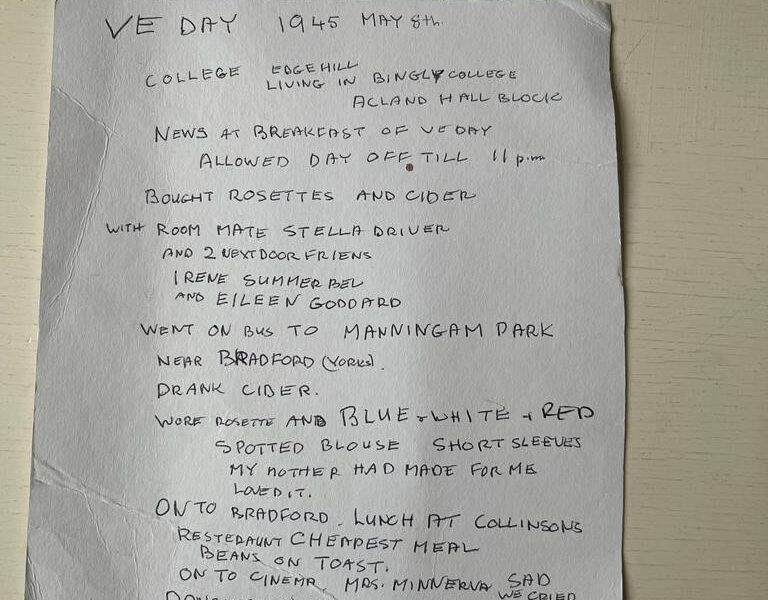 VE DAY 1945 MAY 8th.
COLLEGE EDGEHILL
LIVING IN BINGLY COLLEGE
ACLAND HALL BLOCK
NEWS AT BREAKFAST OF VE DAY
ALLOWED DAY OFF TILL 11 p.m
BOUGHT ROSETTES AND CIDER
WITH ROOM MATE STELLA DRIVER
AND 2 NEXTDOOR FRIENS
IRENE SUMMERBEL
AND EILEEN GODDARD
WENT ON BUS TO MANNINGAM PARK
NEAR BRADFORD (YORKS).
DRANK CIDER.
WORE ROSETTE AND BLUE + WHITE + RED
SPOTTED BLOUSE SHORT SLEEVES
MY MOTHER HAD MADE FOR ME
LOVED IT.
ON TO BRADFORD. LUNCH AT COLLINSONS
RESTERAUNT CHEAPEST MEAL
BEANS ON TOAST.
ON TO CINEMA. MRS. MINNERVA SAD
WE CRIED